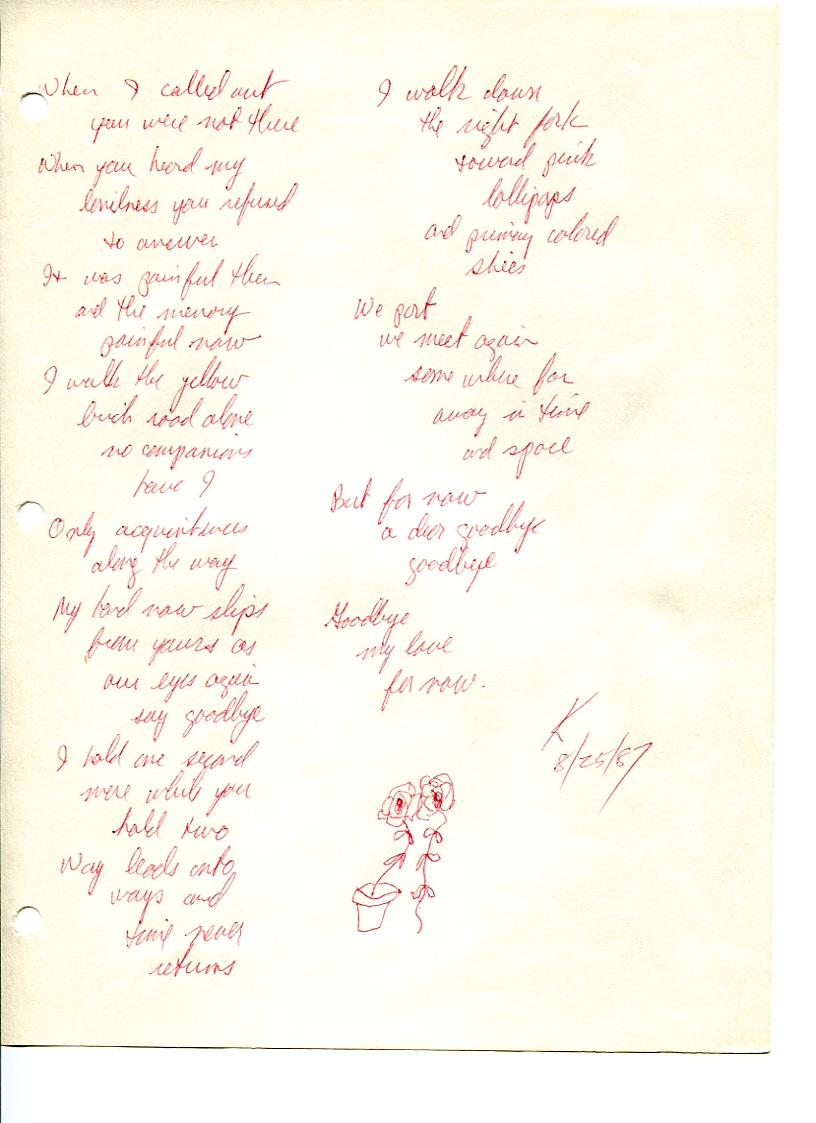 When I called out
you were not there
When you heard my
lonilness you refused
to answer
It was painful then
and the memory
painful now
I walk the yellow
brick road alone
no companions
have I
Only acquintances
along the way
My hand now slips
from yours as
our eyes again
say goodbye
I hold one second
more while you
hold two
Way leads onto
ways and
time never
returns
I walk down
the right fork
toward pink
lollipops
and primary colored
skies
We part
we meet again
some where far
away in time
and space
But for now
a dear goodbye
goodbye
Goodbye
my love
for now.
K
8/25/87